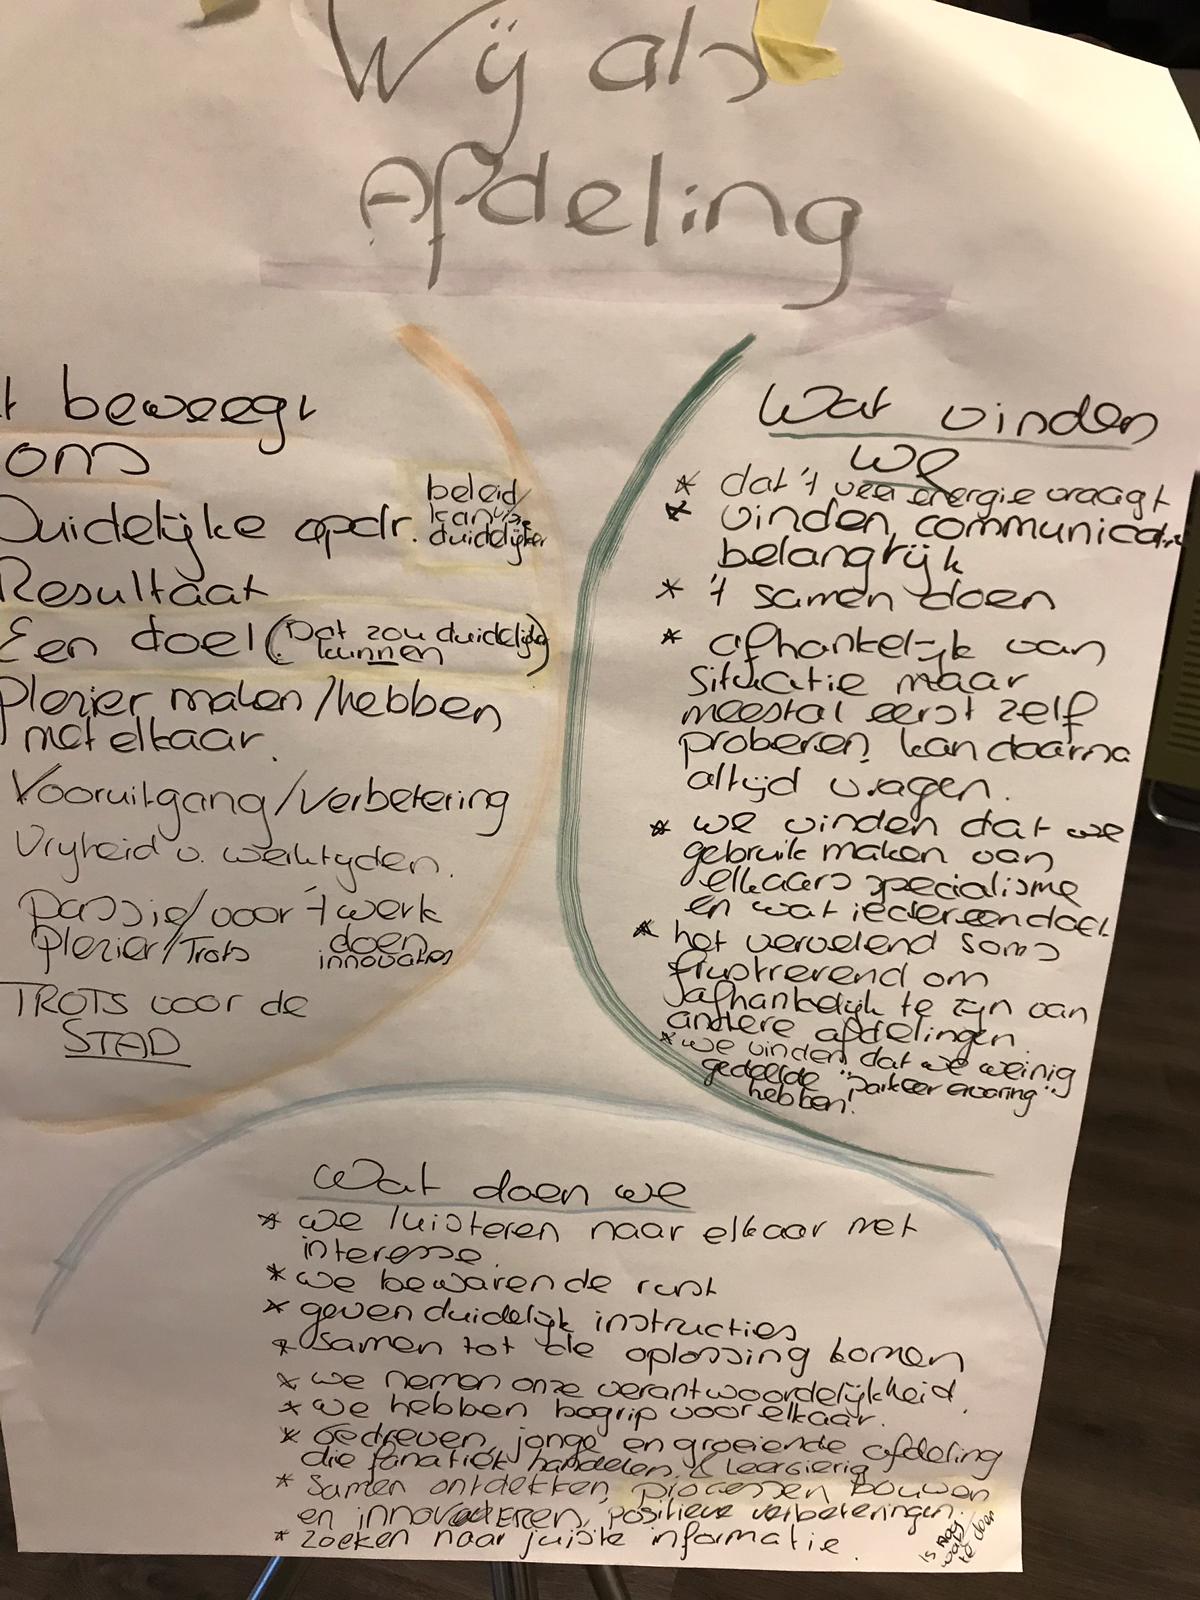 Wij als
Afdeling
t beweegt
ons
Duidelijke opdr.
beleid/
kan
duidelijker
Resultaat
Een doel (Dat zou duidelijker
kunnen)
Plezier maken/hebben
met elkaar.
Vooruitgang/verbetering
Vrijheid v. werktijden.
passie/voor 't werk
plezier/Trots doen
innovaties
TROTS voor de
STAD
Wat vinden
we
* dat 't veel energie vraagt
* vinden communicatie
belangrijk
* 't samen doen
* afhankelijk van
situatie maar
meestal eerst zelf
proberen, kan daarna
altijd vragen.
* we vinden dat we
gebruik maken van
elkaars specialisme
en wat iedereen doet.
* het vervelend soms
frustrerend om
afhankelijk te zijn van
andere afdelingen
* we vinden dat we weinig
gedeelde "parkeer ervaring"
hebben.
Wat doen we
* we luisteren naar elkaar met
interesse.
* we bewaren de rust
* geven duidelijk instructies
* samen tot de oplossing komen
* we nemen onze verantwoordelijkheid.
* we hebben begrip voor elkaar.
* Gedreven, jonge en groeiende afdeling
die fanatiek handelen & leergierig
* Samen ontdekken, processen bouwen
en innoveren, positieve verbeteringen.
* zoeken naar juiste informatie.
is nog
wat
te doen